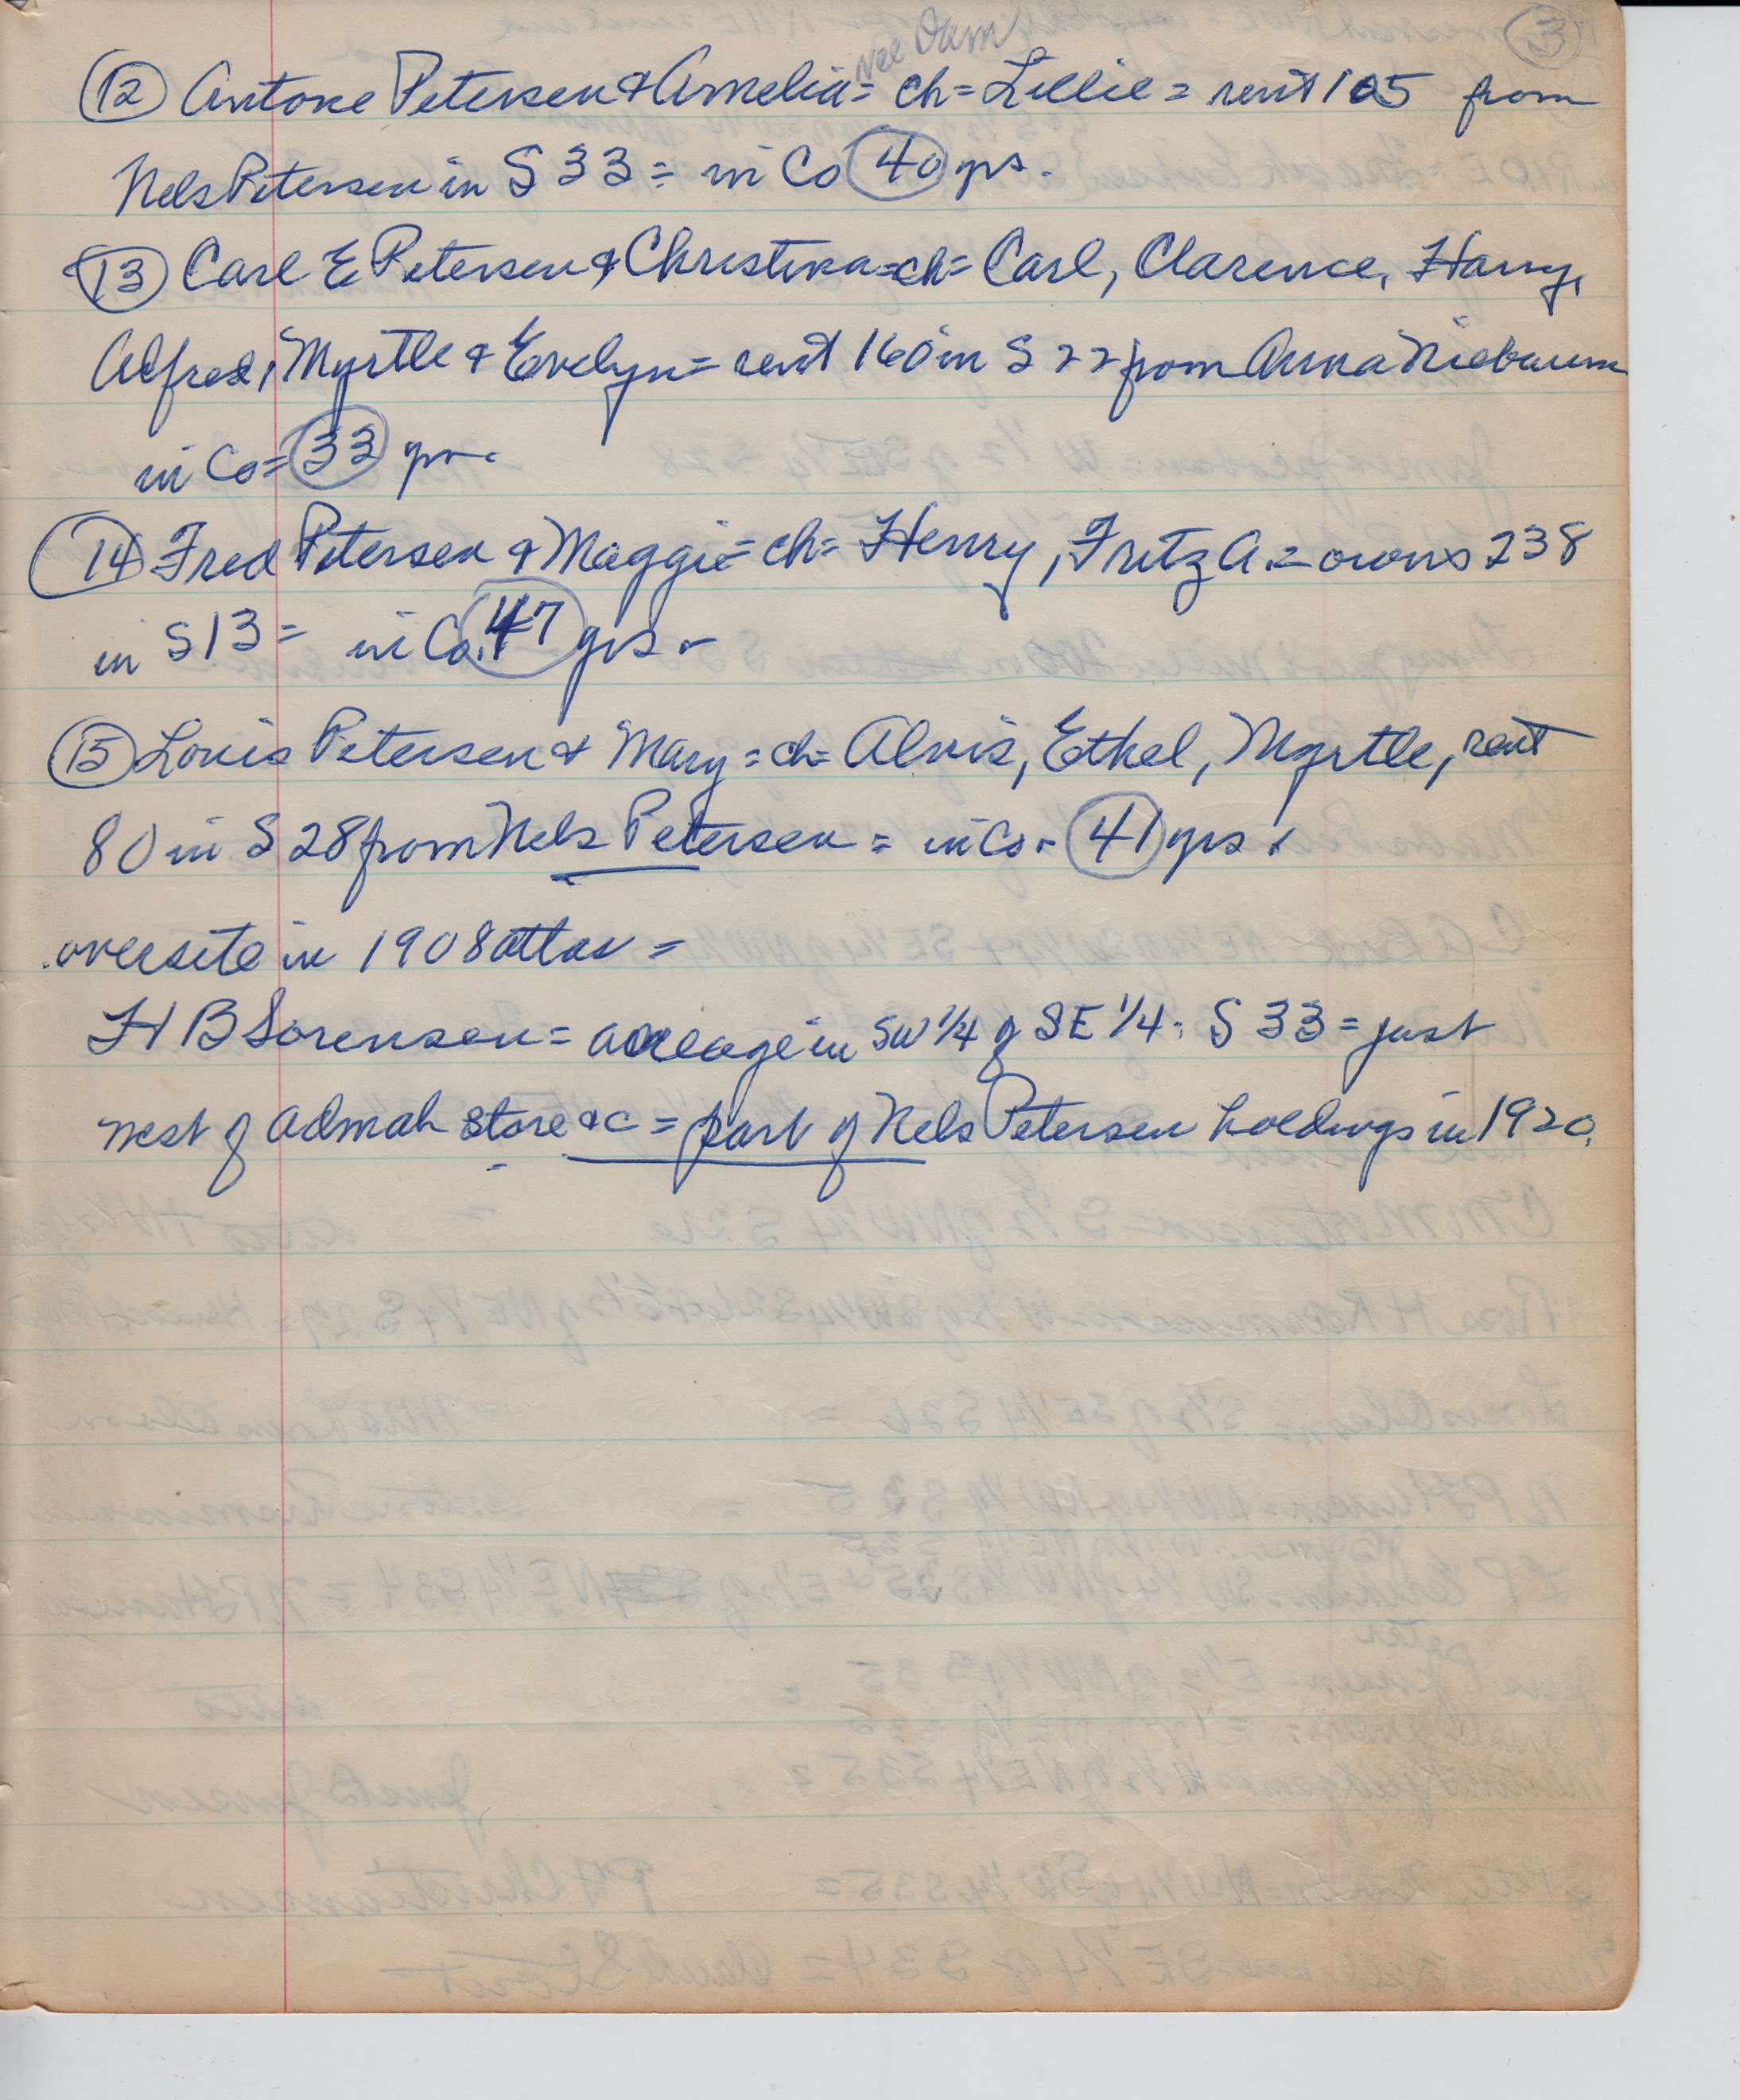 ③
nee Dam
⑫ Antone Petersen & Amelia = ch = Lillie = rent 105 from
Nels Petersen in S 33 = in Co 40 yrs.
⑬ Carl E Petersen & Christina = ch = Carl, Clarence, Harry,
Alfred, Myrtle & Evelyn = rent 160 in S 22 from Anna Niebaum
in Co = 33 yrs.
⑭ Fred Petersen & Maggie = ch = Henry, Fritz A. = owns 238
in S 13 = in Co. 47 yrs. -
⑮ Louis Petersen & Mary = ch = Alvis, Ethel, Myrtle, rent
80 in S 28 from Nels Petersen = in Co. - 41 yrs.
oversite in 1908 attas =
H B Sorensen = acreage in SW 1/4 of SE 1/4. S 33 = just
west of Admah store &c = part of Nels Petersen holdings in 1920.